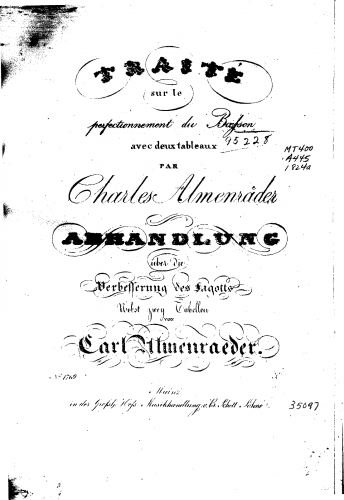 TRAITÉ
sur le
perfectionnement du Basson
avec deux tableaux
PAR
Charles Almenräder
15228
MT400
.A445
1824a
ABHANDLUNG
über die
Verbesserung des Fagotts
Nebst zwey Tabellen
von
Carl Almenraeder.
Mainz
in der Großh. Hofs Musikhandlung v. B. Schott Söhne
35097